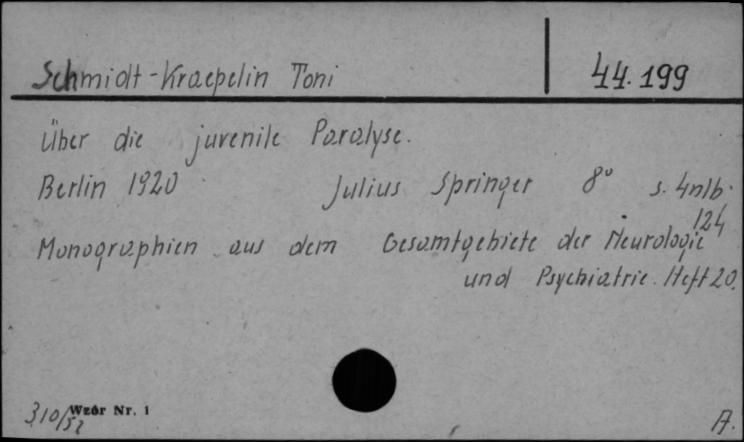 Schmidt-Kraepelin Toni 44.199
Über die juvenile Paralyse.
Berlin 1920 Julius Springer 8° s. 4nlb.
124
Monographien aus dem Gesamtgebiete der Neurologie
und Psychiatrie. Heft 20.
310/52 Wzór Nr. 1
A.